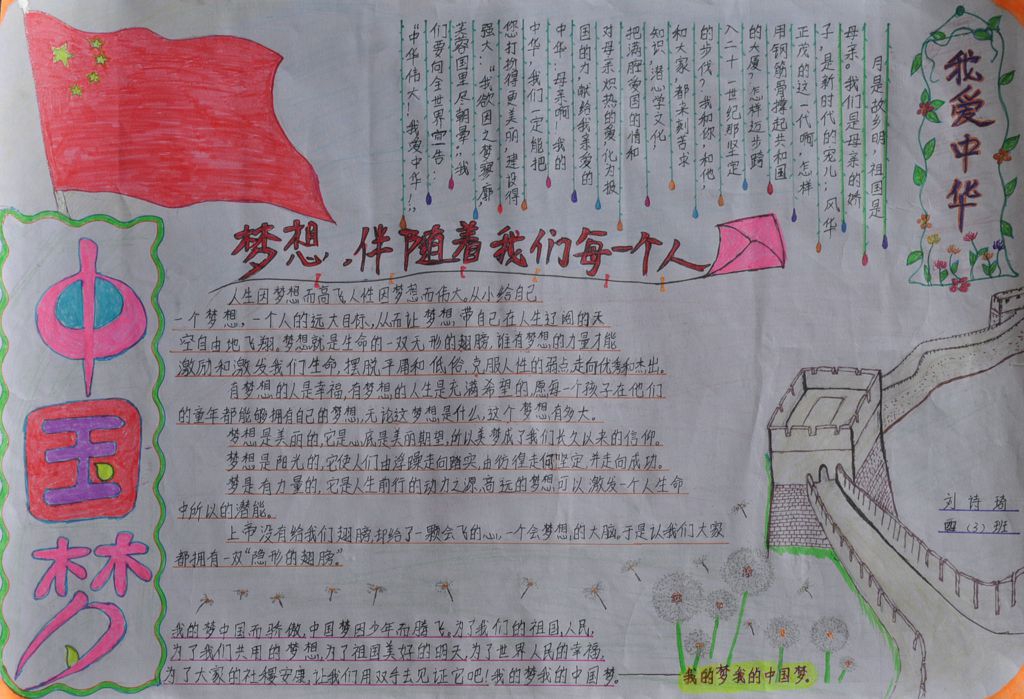 我爱中华
月是故乡明，祖国是
母亲。我们是母亲的娇
子，是新时代的宠儿；风华
正茂的这一代啊，怎样
用钢筋骨撑起共和国
的大厦？怎样迈步跨
入二十一世纪那坚定
的步伐？我和你，和他，
和大家，都来刻苦求
知识，潜心学文化，
把满腔爱国的情和
对母亲炽热的爱化为报
国的力，献给我亲爱的
中华：母亲啊！我的
中华，我们一定能把
您打扮得更美丽，建设得
强大：“我欲因之梦寥廓，
芙蓉国里尽朝晖”，我
们要向全世界宣告：
“中华伟大！我爱中华！”
中国梦
梦想，伴随着我们每一个人
人生因梦想而高飞人性因梦想而伟大。从小给自己
一个梦想，一个人的远大目标，从而让梦想，带自己在人生辽阔的天
空自由地飞翔。梦想就是生命的一双无形的翅膀，唯有梦想的力量才能
激励和激发我们生命，摆脱平庸和低俗，克服人性的弱点走向优秀和杰出。
有梦想的人是幸福，有梦想的人生是充满希望的，愿每一个孩子在他们
的童年都能够拥有自己的梦想，无论这梦想是什么，这个梦想有多大。
梦想是美丽的，它是心底是美丽期望，所以美梦成了我们长久以来的信仰。
梦想是阳光的，它使人们由浮躁走向踏实，由彷徨走向坚定，并走向成功。
梦是有力量的，它是人生前行的动力之源，高远的梦想可以激发一个人生命
中所以的潜能。
上帝没有给我们翅膀，却给了一颗会飞的心，一个会梦想的大脑，于是让我们大家
都拥有一双“隐形的翅膀”
刘诗琦
四（3）班
我的梦中国而骄傲，中国梦因少年而腾飞，为了我们的祖国，人民，
为了我们共用的梦想，为了祖国美好的明天，为了世界人民的幸福，
为了大家的社稷安康，让我们用双手去见证它吧！我的梦我的中国梦。
我的梦我的中国梦。